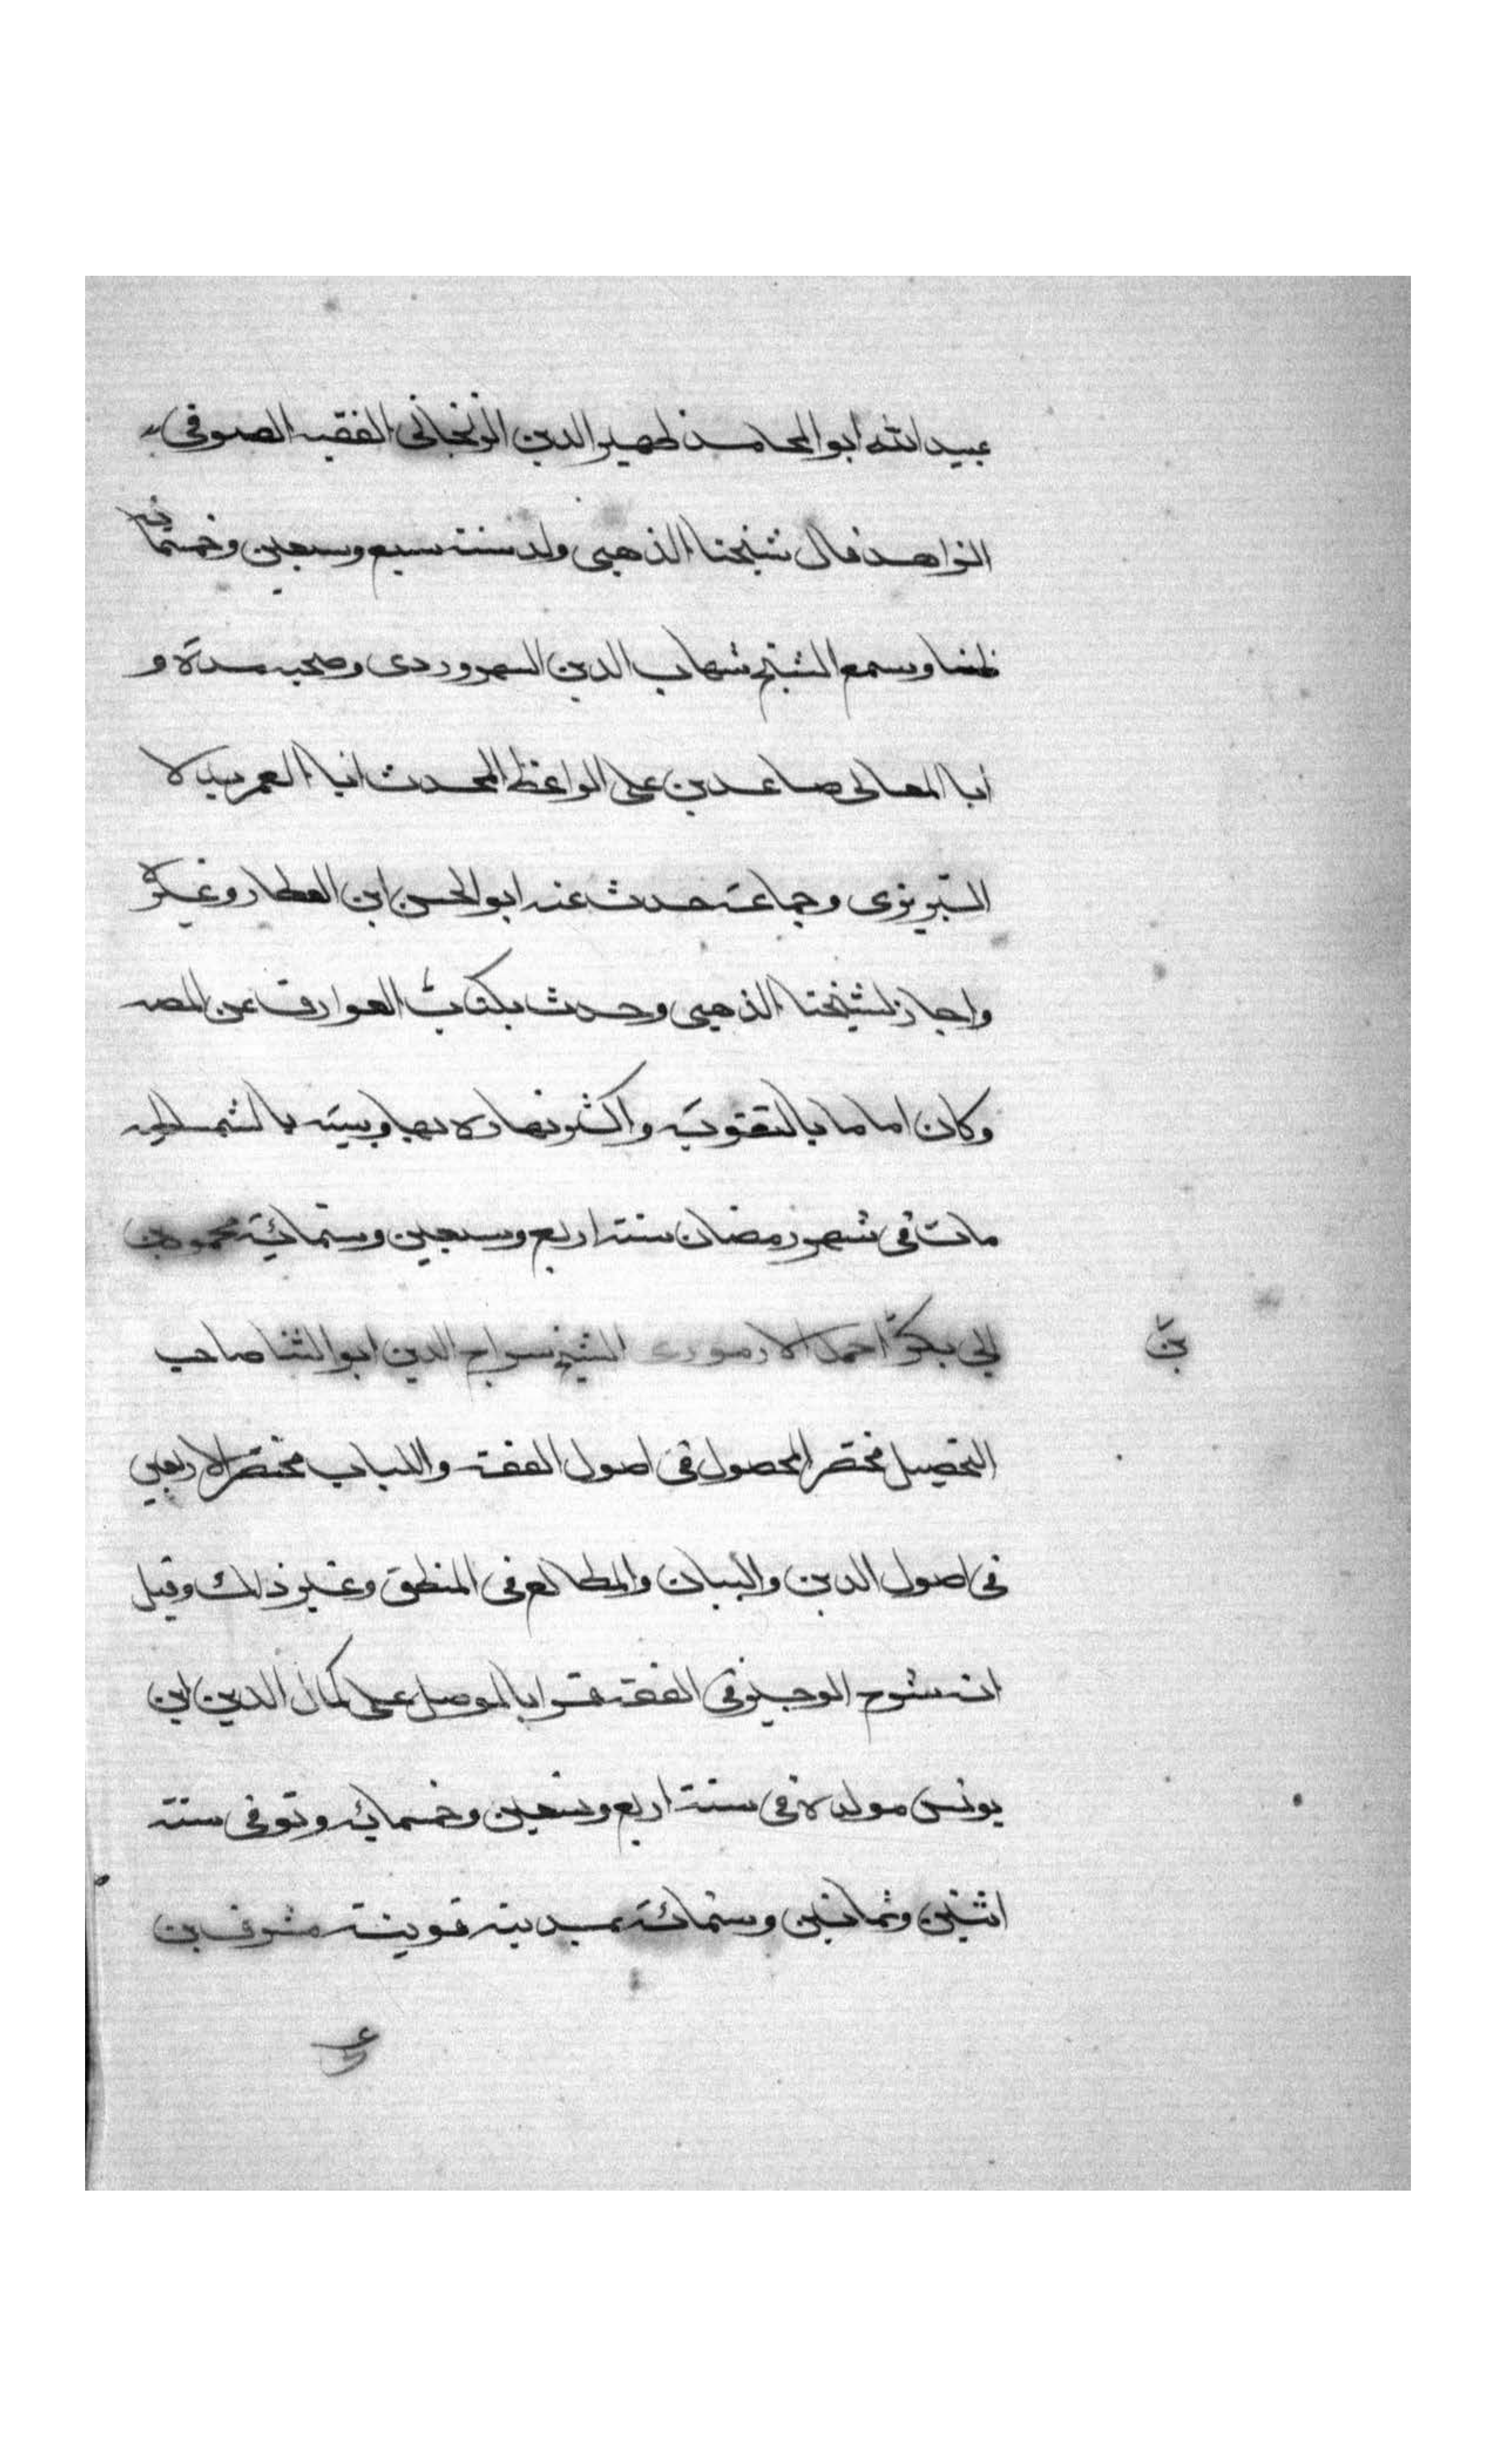 عبيد الله ابو المحامد ظهير الدين الزنجاني الفقيه الصوفي
الزاهد قال شيخنا الذهبي ولد سنة سبع وسبعين وخمسمائة
ظنا وسمع الشيخ شهاب الدين السهروردى وصحبه مدة و
أبا المعالى صاعد بن على الواعظ المحدث انبا العمر بدلا
التبريزى وجماعة حدث عنه ابو الحسن ابن العطار وغيره
واجاز لشيخنا الذهبى وحدث بكتاب العوارف عن المصـ
وكان اماما بالتقوية واكثر نهاره بها وبيته بالشمـ
مات فى شهر رمضان سنة اربع وسبعين وستمائة محمود بن
ابى بكر احمد الارموى الشيخ سراج الدين ابو الثنا صاحب
بن
التحصيل مختصر المحصول فى اصول الفقه واللباب مختصر الاربعين
فى اصول الدين والبيان والمطالع فى المنطق وغير ذلك وقيل
انه شرح الوجيز فى الفقه قرا بالموصل على كمال الدين ابن
يونس مولده فى سنة اربع وتسعين وخمسمائه وتوفى سنة
اثنين وثمانين وستمائة بمدينة قونية مشرف بن